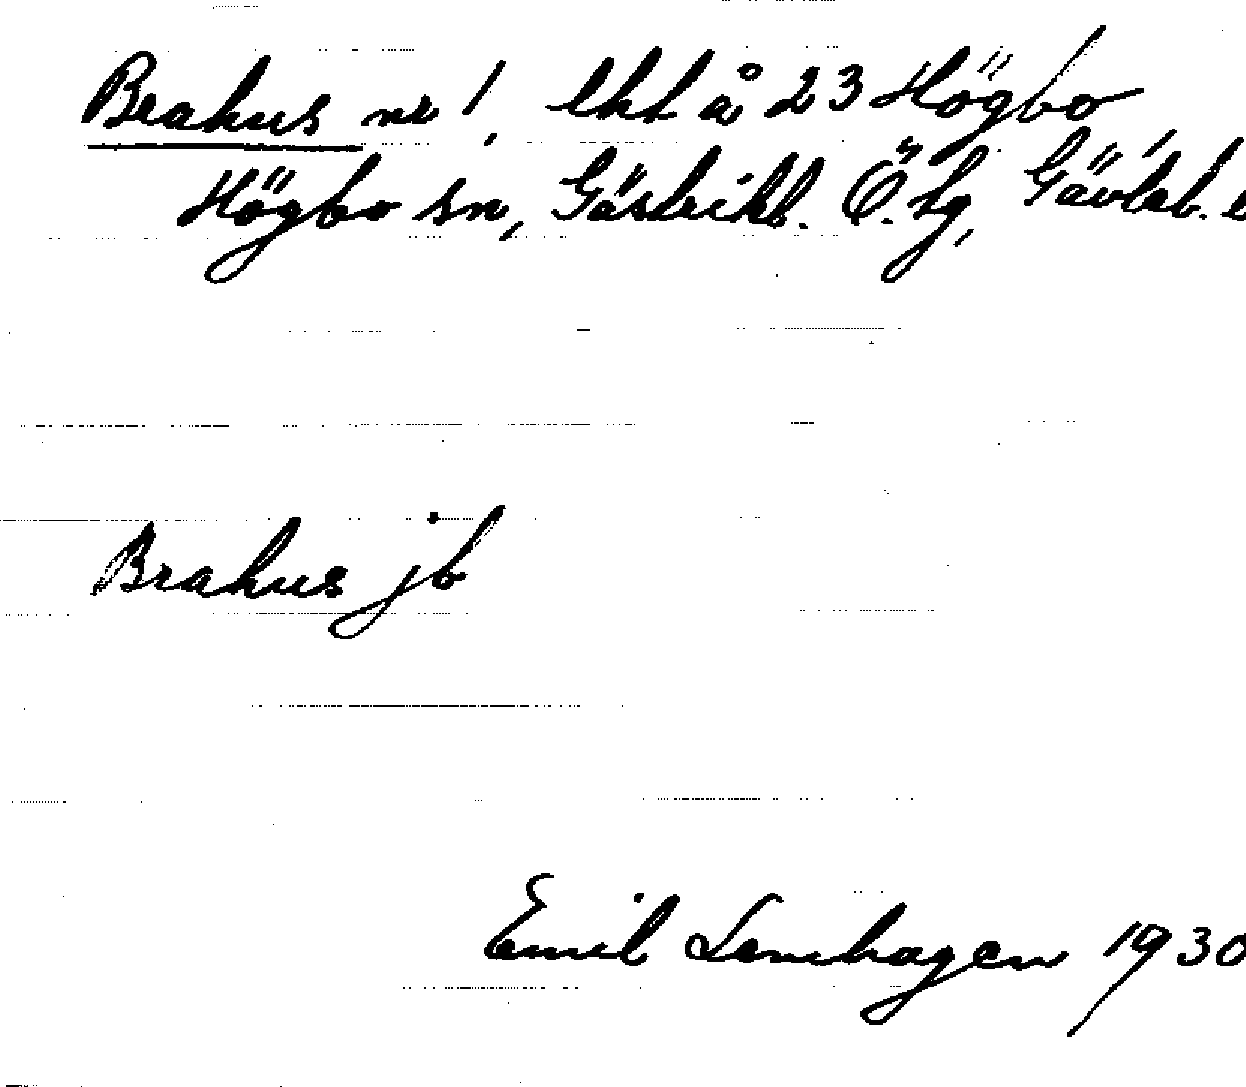 Brahus nr 1, lht å 23 Högbo
Högbo sn, Gästrikl. Ö. hg, Gävleb.
Brahus jb
Emil Lenhagen 1930